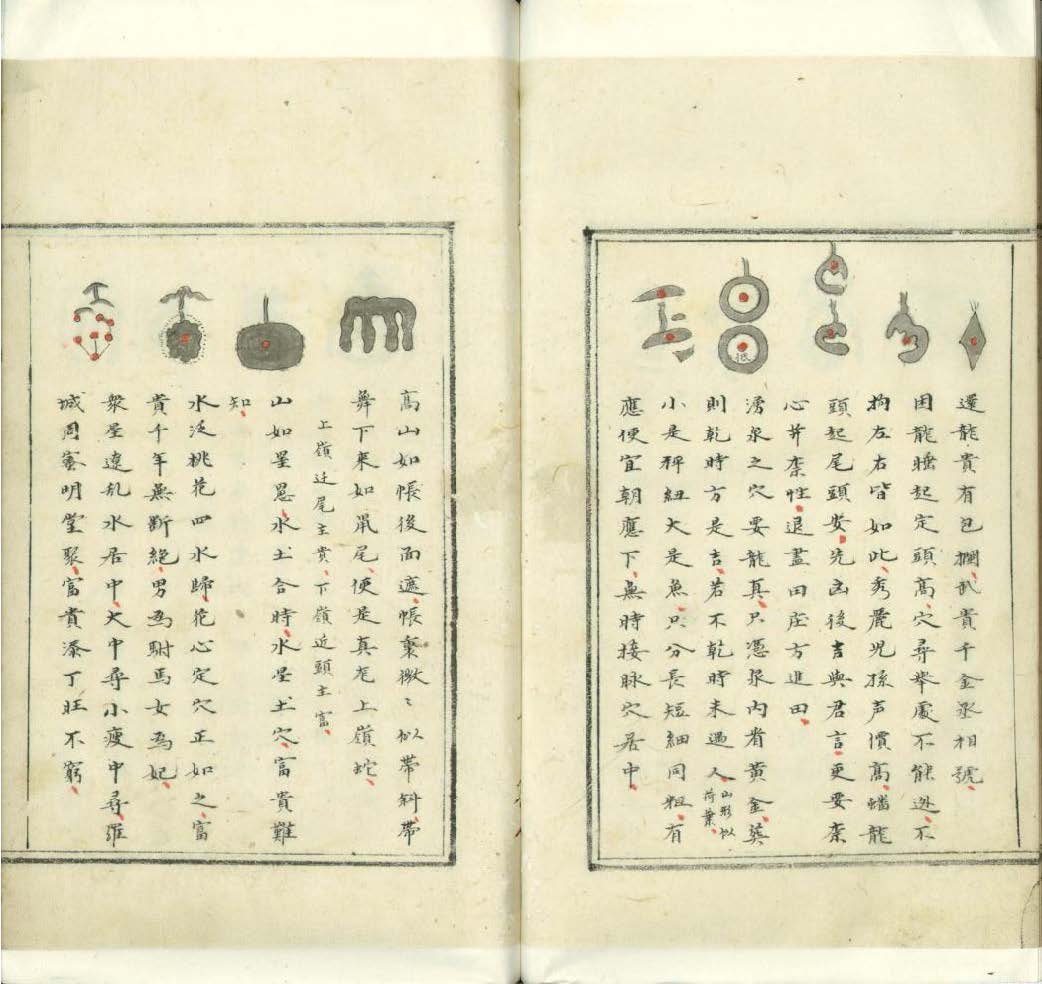 還龍貴有包攔、武貴千金丞相號、
困龍睡起定頭高、穴尋舉處不能迯、不
拘左右皆如此、秀麗兒孫声價高、蟠龍
頭起尾頭安、先凶後吉與君言、更要秉
心并秉性、退盡田庄方進田、
湧泉之穴要龍真、只憑泉內有黃金、葬
則乾時方是吉、若不乾時未過人、山形似
荷葉、
小是稗紐大是魚、只分長短細同粗、有
應便宜朝應下、無時接脉穴居中、
低
高山如帳後面遮、帳裏微〻似帶斜、帶
舞下來如鼠尾、便是真龙上嶺蛇、
上嶺迁尾主貴、下嶺近頭主富、
山如星㫒、水土合時、水星土穴、富貴難
知、
水泛桃花四水歸、花心定穴正如之、富
貴千年無斷絕、男為駙馬女為妃、
衆星遼乱水居中、大中尋小瘦中尋、羅
城周密明堂聚、富貴添丁旺不窮、